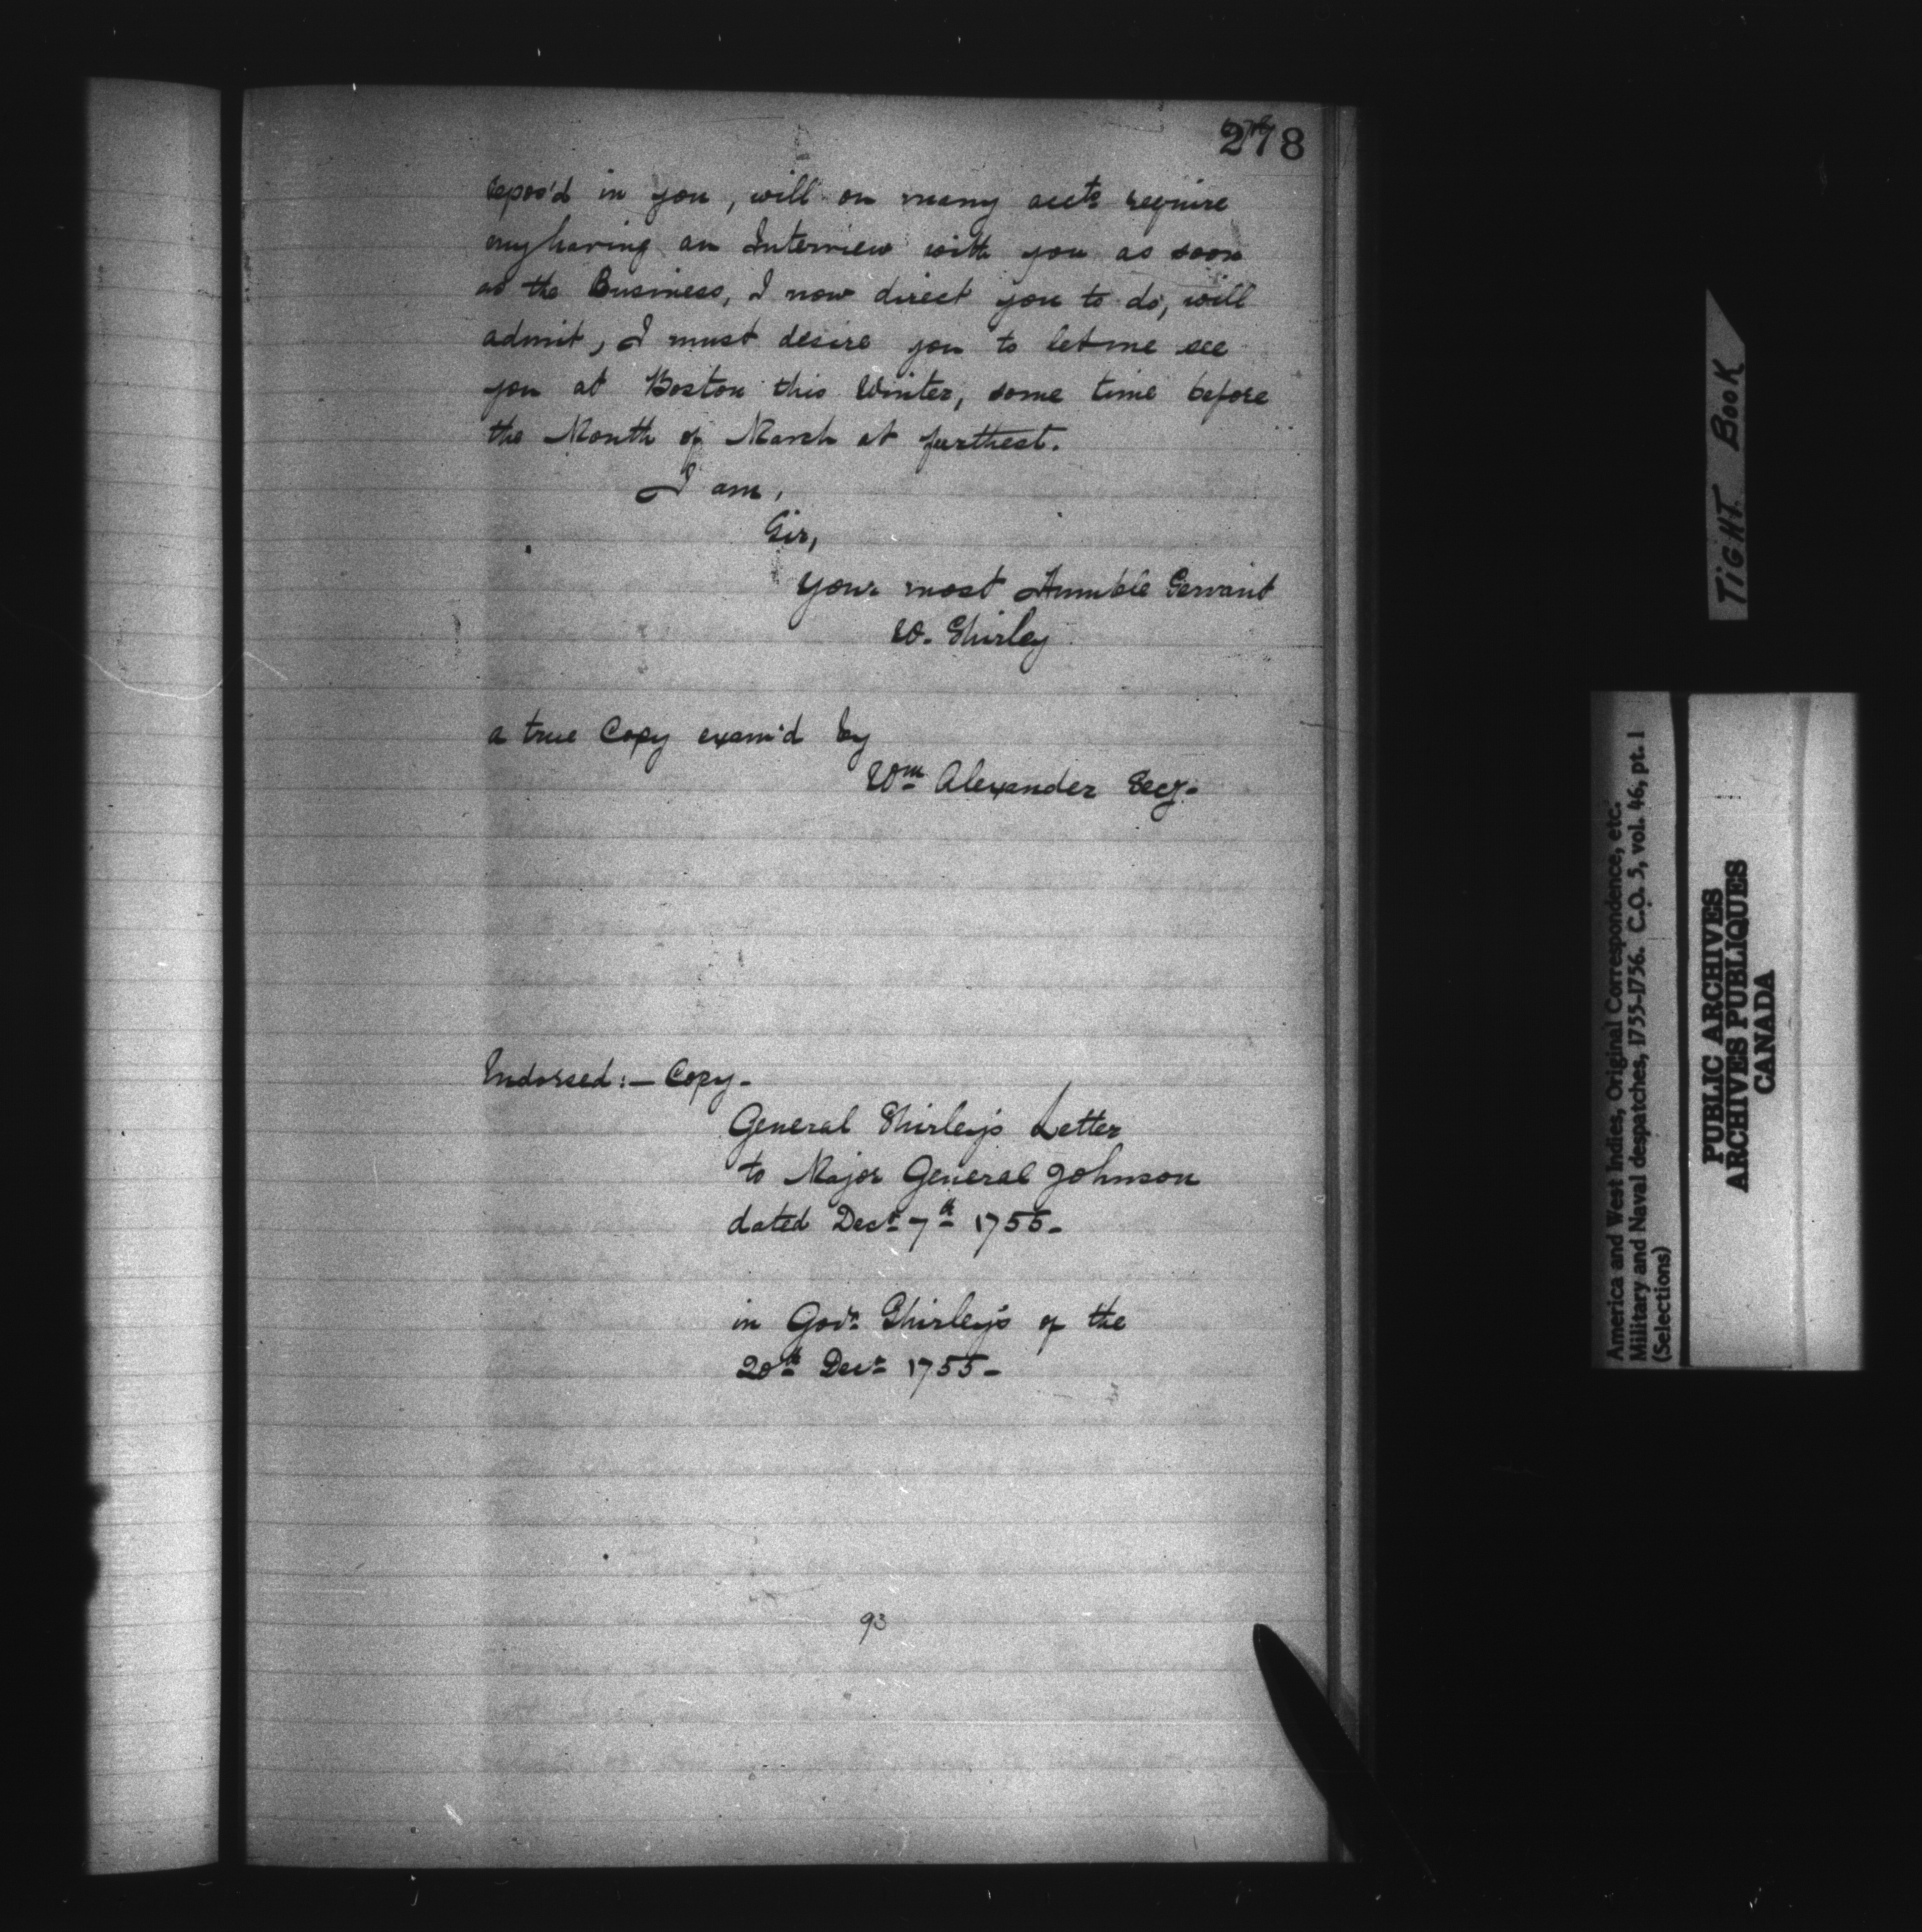 278
repos'd in you, will on many accts require
my having an Interview with you as soon
as the Business, I now direct you to do, will
admit, I must desire you to let me see
you at Boston this Winter, some time before
the Month of March at furthest.
I am,
Sir,
your most Humble Servant
W. Shirley
a true Copy exam'd by
Wm Alexander Secy.
Indorsed:— Copy—
General Shirley's Letter
to Major General Johnson
dated Decr 7th 1755—
in Govr Shirley's of the
20th Decr 1755—
93
TIGHT BOOK
America and West Indies, Original Correspondence, etc.
Military and Naval despatches, 1755-1756. C.O. 5, vol. 46, pt. 1
(Selections)
PUBLIC ARCHIVES
ARCHIVES PUBLIQUES
CANADA